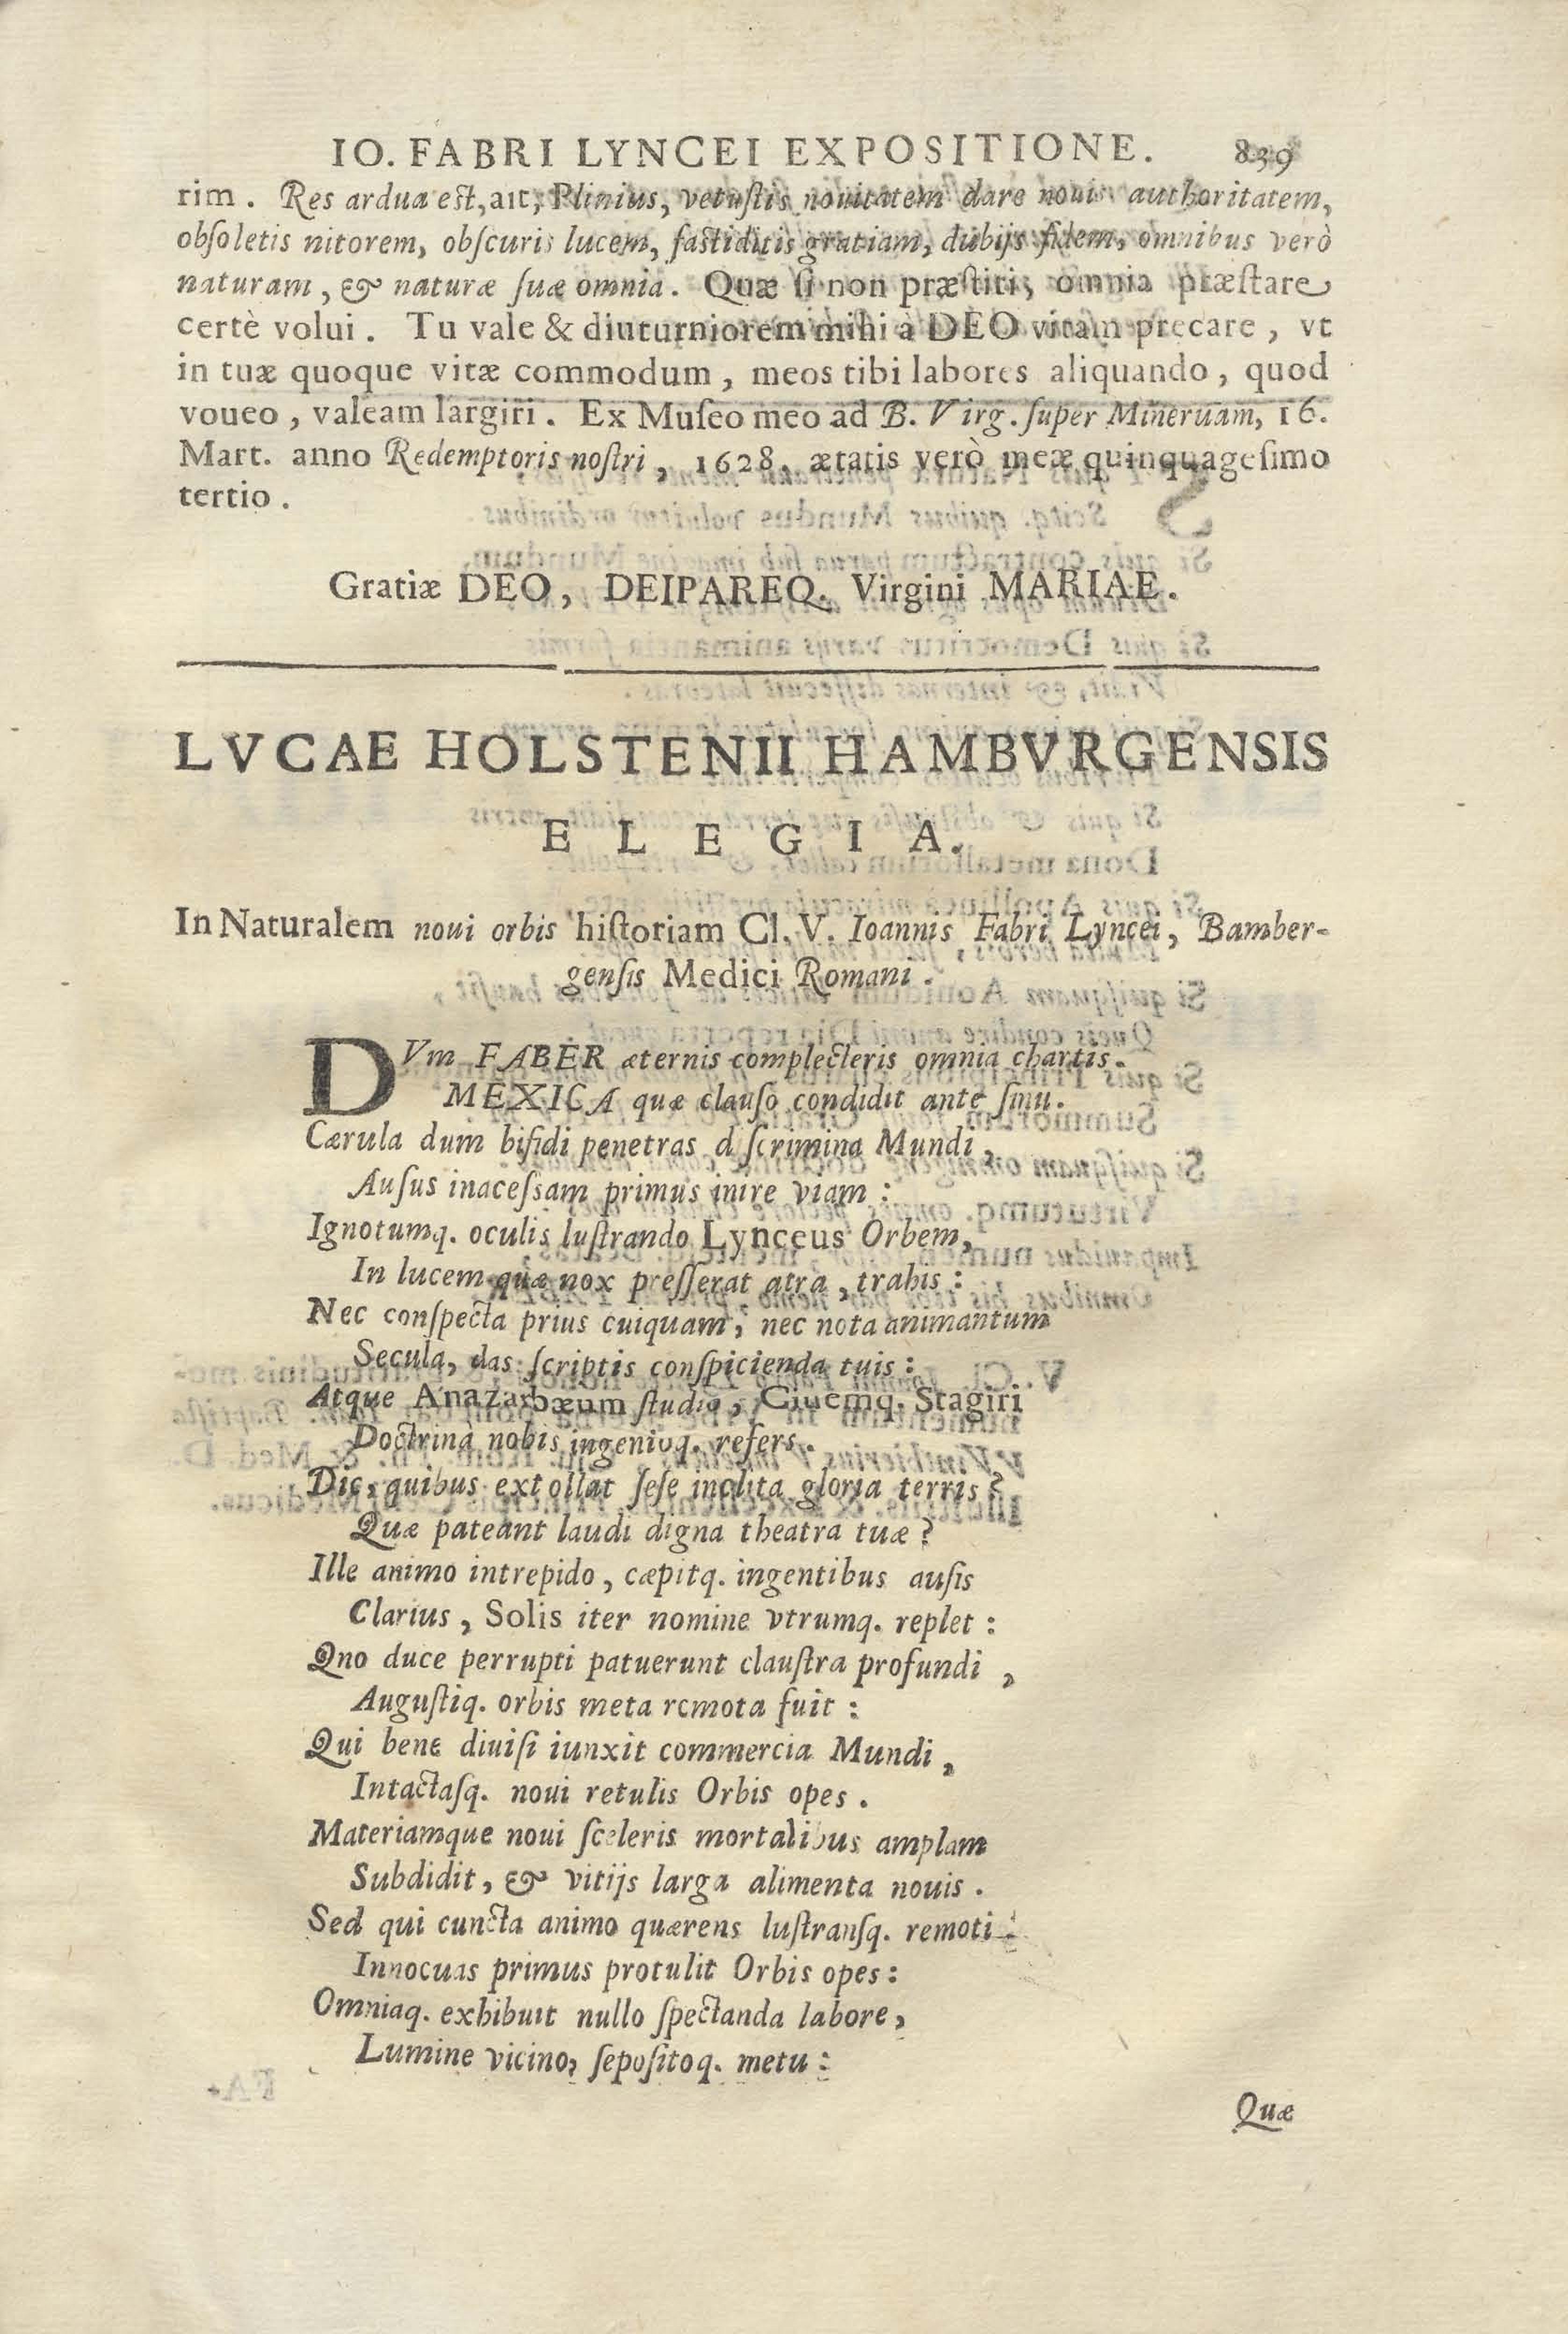 IO. FABRI LYNCEI EXPOSITIONE. 839
rim. Res ardua est, ait, Plinius, vetuſtis nouitatem dare nouis authoritatem,
obſoletis nitorem, obſcuris lucem, faſtiditis gratiam, dubijs fidem, omnibus verò
naturam, & naturæ ſuæ omnia. Quæ ſi non præſtiti, omnia præſtare
certè volui. Tu vale & diuturniorem mihi à DEO vitam precare, vt
in tuæ quoque vitæ commodum, meos tibi labores aliquando, quod
voueo, valeam largiri. Ex Muſeo meo ad B. Virg. ſuper Mineruam, 16.
Mart. anno Redemptoris noſtri, 1628. ætatis verò meæ quinquageſimo
tertio.
Gratiæ DEO, DEIPAREQ. Virgini MARIAE.
LVCAE HOLSTENII HAMBVRGENSIS
ELEGIA.
In Naturalem noui orbis hiſtoriam Cl. V. Ioannis Fabri Lyncei, Bamber-
genſis Medici Romani.
DVm FABER æternis complecteris omnia chartis.
MEXICA quæ clauſo condidit ante ſinu.
Cærula dum bifidi penetras diſcrimina Mundi,
Auſus inaceſsam primus inire viam:
Ignotumq. oculis luſtrando Lynceus Orbem,
In lucem quæ nox preſſerat atra, trahis:
Nec conſpecta prius cuiquam, nec nota animantum
Secula, das ſcriptis conſpicienda tuis:
Atque Anazarbæum ſtudio, Ciuemq. Stagiri
Doctrina nobis ingenioq. refers.
Dic, quibus extollat ſeſe inclita gloria terris?
Quæ pateant laudi digna theatra tuæ?
Ille animo intrepido, cæpitq. ingentibus auſis
Clarius, Solis iter nomine vtrumq. replet:
Qno duce perrupti patuerunt clauſtra profundi,
Auguſtiq. orbis meta remota fuit:
Qui bene diuiſi iunxit commercia Mundi,
Intactaſq. noui retulis Orbis opes.
Materiamque noui ſceleris mortalibus amplam
Subdidit, & vitijs larga alimenta nouis.
Sed qui cuncta animo quærens luſtranſq. remoti:
Innocuas primus protulit Orbis opes:
Omniaq. exhibuit nullo ſpectanda labore,
Lumine vicino, ſepoſitoq. metu:
Quæ